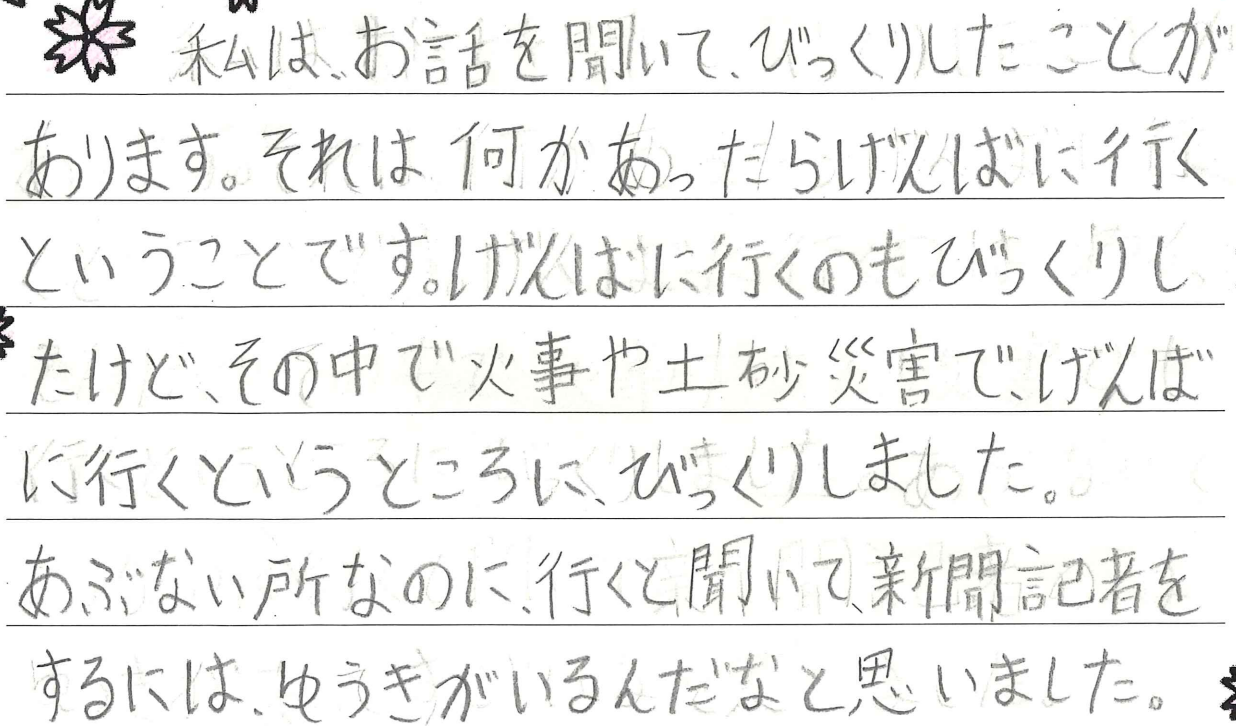 私は、お話を聞いて、びっくりしたことが
あります。それは何かあったらげんばに行く
ということです。げんばに行くのもびっくりし
たけど、その中で火事や土砂災害で、げんば
に行くというところに、びっくりしました。
あぶない所なのに、行くと聞いて、新聞記者を
するには、ゆうきがいるんだなと、思いました。